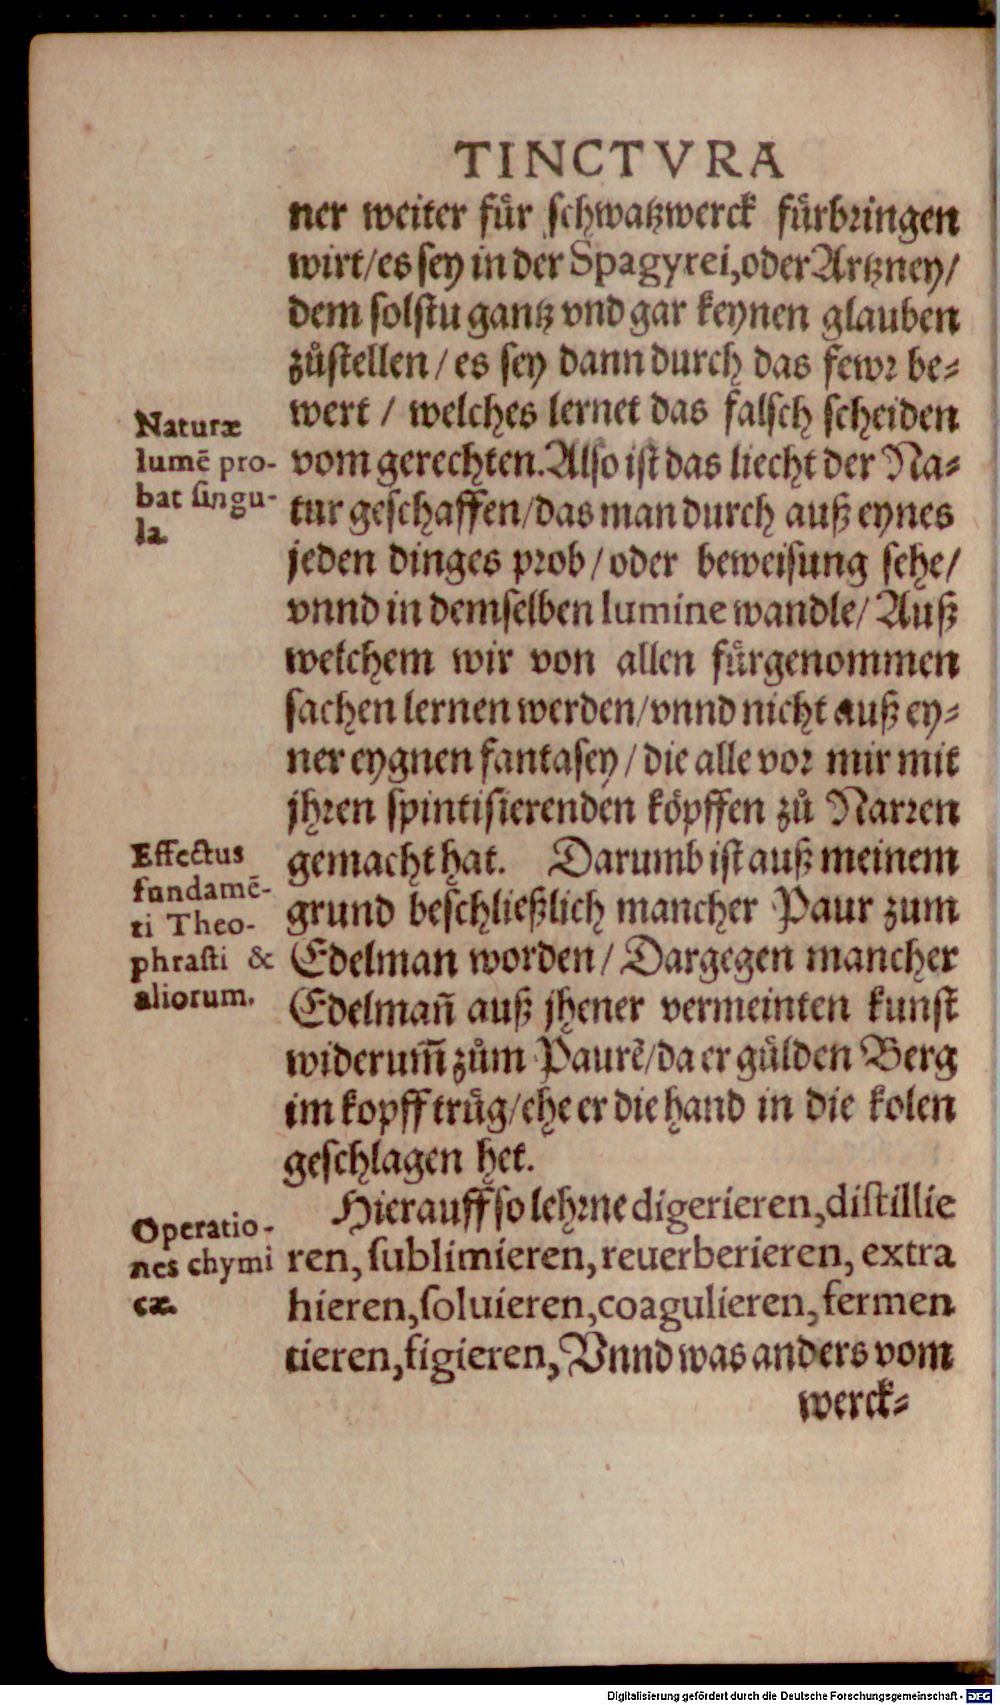 TINCTVRA
ner weiter fuͤr schwatzwerck fuͤrbringen
wirt/es sey in der Spagyrei,oder Artzney/
dem solstu gantz vnd gar keynen glauben
zůstellen/es sey dann durch das fewr be⸗
wert / welches lernet das falsch scheiden
vom gerechten.Also ist das liecht der Na⸗
tur geschaffen/das man durch auß eynes
jeden dinges prob/oder beweisung sehe/
vnnd in demselben lumine wandle/Auß
welchem wir von allen fuͤrgenommen
sachen lernen werden/vnnd nicht auß ey⸗
ner eygnen fantasey/die alle vor mir mit
jhren spintisierenden koͤpffen zů Narren
gemacht hat. Darumb ist auß meinem
grund beschließlich mancher Paur zum
Edelman worden/Dargegen mancher
Edelmañ auß jhener vermeinten kunst
widerum̃ zům Paurẽ/da er guͤlden Berg
im kopff trůg/ehe er die hand in die kolen
geschlagen het.
Hierauff so lehrne digerieren,distillie
ren,sublimieren,reuerberieren,extra
hieren,soluieren,coagulieren,fermen
tieren,figieren,Vnnd was anders vom
werck⸗
Naturæ
lumē pro-
bat singu-
la.
Effectus
fundamē-
ti Theo-
phrasti &
aliorum.
Operatio-
nes chymi
cæ.
Digitalisierung gefördert durch die Deutsche Forschungsgemeinschaft - DFG